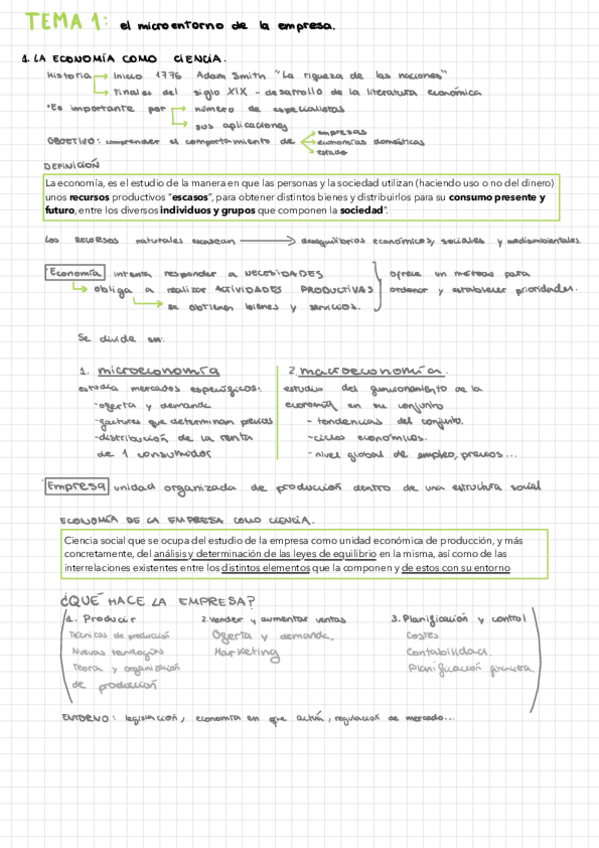 TEMA 1: el microentorno de la empresa.
1. LA ECONOMÍA COMO CIENCIA.
Historia Inicio 1776 Adam Smith "La riqueza de las naciones"
Finales del siglo XIX - desarrollo de la literatura económica
*Es importante por número de especialistas
sus aplicaciones
OBJETIVO: comprender el comportamiento de empresas
economías domésticas
estado
DEFINICIÓN
La economía, es el estudio de la manera en que las personas y la sociedad utilizan (haciendo uso o no del dinero)
unos recursos productivos "escasos", para obtener distintos bienes y distribuirlos para su consumo presente y
futuro, entre los diversos individuos y grupos que componen la sociedad".
Los RECURSOS naturales escasean desequilibrios económicos, sociales y medioambientales.
Economía intenta responder a NECESIDADES ofrece un método para
obliga a realizar ACTIVIDADES PRODUCTIVAS ordenar y establecer prioridades.
se obtienen bienes y servicios.
Se divide en:
1. microeconomía 2. macroeconomía.
estudia mercados específicos: estudio del funcionamiento de la
-oferta y demanda economía en su conjunto
-factores que determinan precios - tendencias del conjunto.
-distribución de la renta -ciclos económicos.
de 1 consumidor - nivel global de empleo, precios...
Empresa unidad organizada de producción dentro de una estructura social
ECONOMÍA DE LA EMPRESA COMO CIENCIA.
Ciencia social que se ocupa del estudio de la empresa como unidad económica de producción, y más
concretamente, del análisis y determinación de las leyes de equilibrio en la misma, así como de las
interrelaciones existentes entre los distintos elementos que la componen y de estos con su entorno
¿QUÉ HACE LA EMPRESA?
1. Producir 2. vender y aumentar ventas 3. Planificación y control
Técnicas de producción Oferta y demanda. Costes
Nuevas tecnologías Marketing Contabilidad.
Teoría y organización Planificación financiera
de producción
ENTORNO: legislación, economía en que actúa, regulación de mercado...